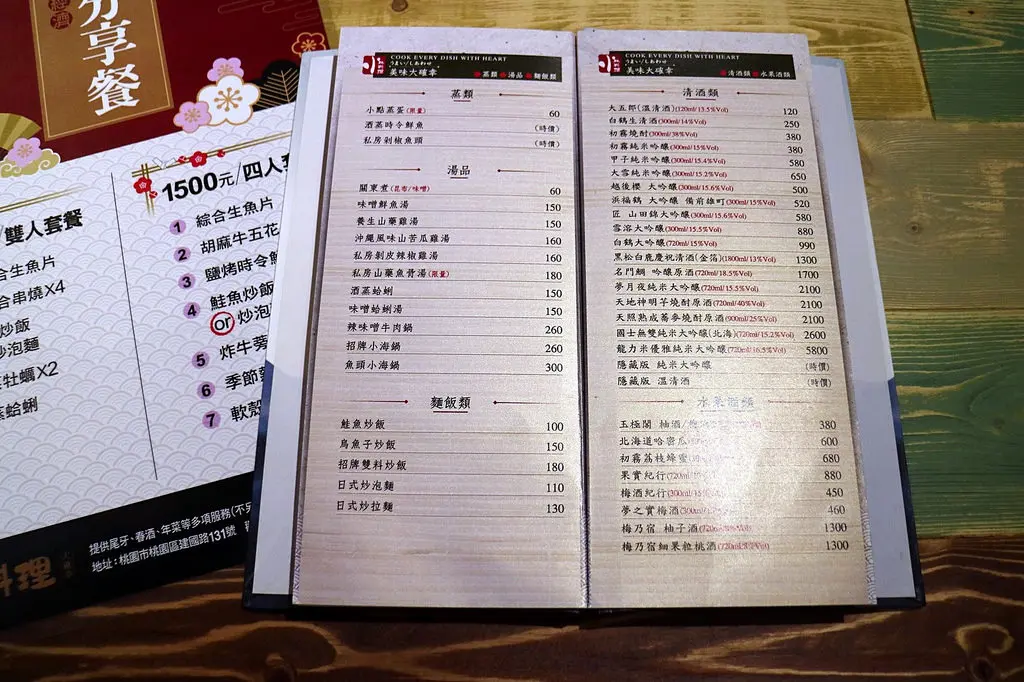 經濟
分享餐
雙人套餐
合生魚片
合串燒X4
炒飯
炒泡麵
牡蠣X2
蒸蛤蜊
1500元/四人套
1 綜合生魚片
2 胡麻牛五花
3 鹽烤時令鮮
4 鮭魚炒飯
or 炒泡
5 炸牛蒡
6 季節
7 軟殼
提供尾牙、春酒、年菜等多項服務(不另
地址:桃園市桃園區建國路131號
料理
COOK EVERY DISH WITH HEART
うまい/しあわせ
美味大確幸
蒸類 湯品 麵飯類
蒸類
小點蒸蛋(限量) 60
酒蒸時令鮮魚 (時價)
私房剁椒魚頭 (時價)
湯品
關東煮(昆布/味噌) 60
味噌鮮魚湯 150
養生山藥雞湯 150
沖繩風味山苦瓜雞湯 160
私房剝皮辣椒雞湯 160
私房山藥魚骨湯(限量) 180
酒蒸蛤蜊 150
味噌蛤蜊湯 150
辣味噌牛肉鍋 260
招牌小海鍋 260
魚頭小海鍋 300
麵飯類
鮭魚炒飯 100
烏魚子炒飯 150
招牌雙料炒飯 180
日式炒泡麵 110
日式炒拉麵 130
COOK EVERY DISH WITH HEART
うまい/しあわせ
美味大確幸
清酒類 水果酒類
清酒類
大五郎(溫清酒)(120ml/13.5%Vol) 120
白鶴生清酒(300ml/14%Vol) 250
初霧燒酎(300ml/38%Vol) 380
初霧純米吟釀(300ml/15%Vol) 380
甲子純米吟釀(300ml/15.4%Vol) 580
大雪純米吟釀(300ml/15.2%Vol) 650
越後櫻 大吟釀(300ml/15.6%Vol) 500
浜福鶴 大吟釀 備前雄町(300ml/15%Vol) 520
匠 山田錦大吟釀(300ml/15.6%Vol) 580
雪溶大吟釀(300ml/15.5%Vol) 880
白鶴大吟釀(720ml/15%Vol) 990
黑松白鹿慶祝清酒(金箔)(1800ml/13%Vol) 1300
名門鯛 吟釀原酒(720ml/18.5%Vol) 1700
夢月夜純米大吟釀(720ml/15.5%Vol) 2100
天地神明芋燒酎原酒(720ml/40%Vol) 2100
天照熟成蕎麥燒酎原酒(900ml/25%Vol) 2100
國士無雙純米大吟釀(北海)(720ml/15.2%Vol) 2600
龍力米優雅純米大吟釀(720ml/16.5%Vol) 5800
隱藏版 純米大吟釀 (時價)
隱藏版 溫清酒 (時價)
水果酒類
玉極閣 柚酒/ 380
北海道哈密瓜 600
初霧荔枝蜂蜜 680
果實紀行(720ml 880
梅酒紀行(300ml/15%Vol) 450
夢之實梅酒(300ml 460
梅乃宿 柚子酒(720ml/8%Vol) 1300
梅乃宿細果粒桃酒(720ml/8%Vol) 1300